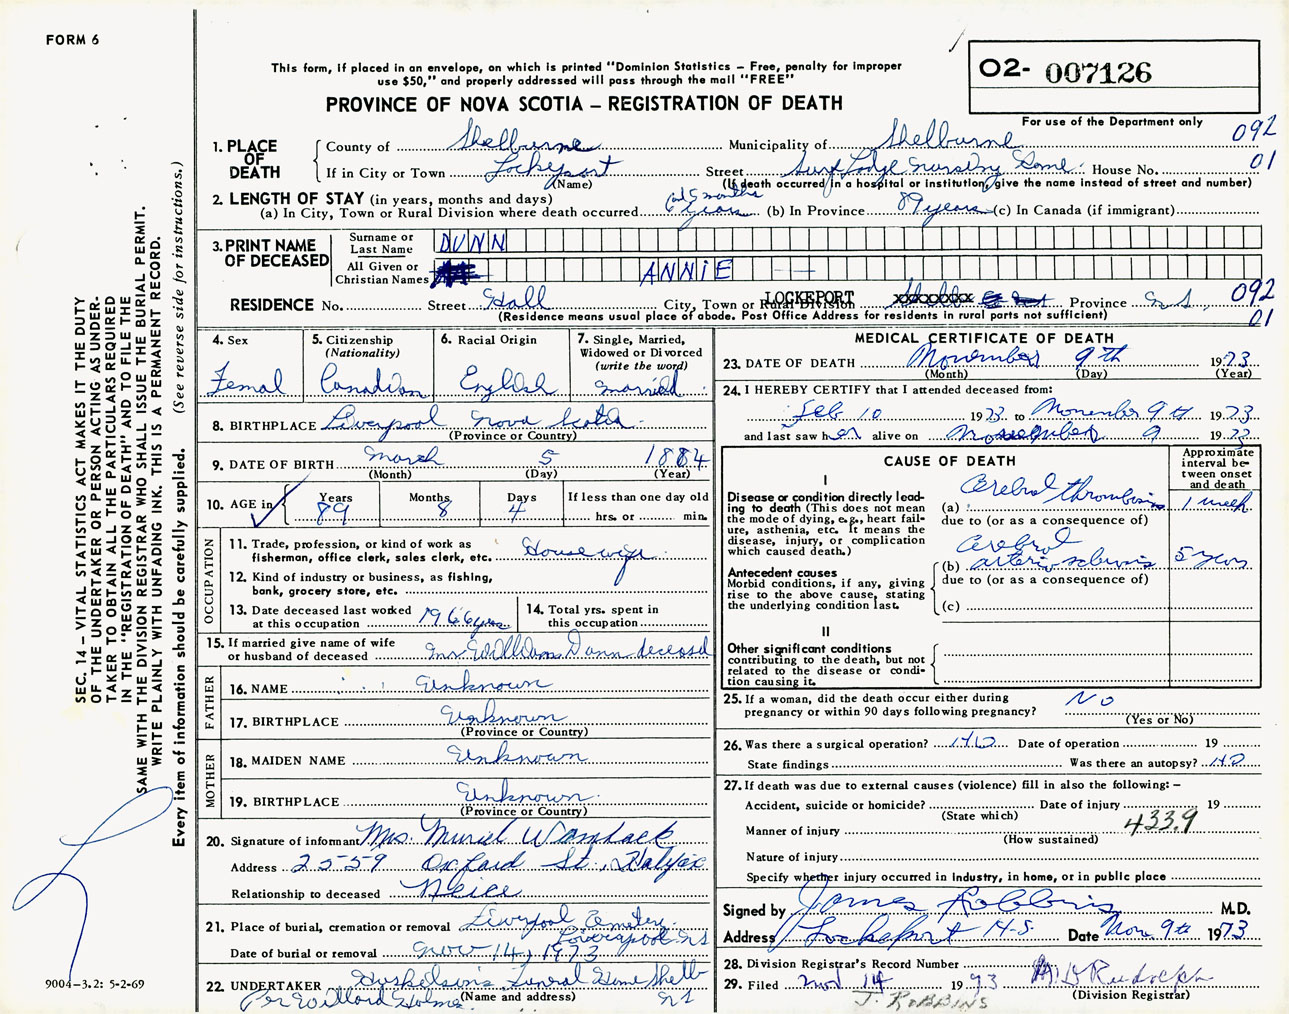 FORM 6
This form, if placed in an envelope, on which is printed "Dominion Statistics – Free, penalty for improper
use $50," and properly addressed will pass through the mail "FREE"
PROVINCE OF NOVA SCOTIA – REGISTRATION OF DEATH
02- 007126
For use of the Department only
092
01
1. PLACE OF DEATH
County of Shelburne Municipality of Shelburne
If in City or Town Lockeport Street Surf Lodge Nursing Home House No.
(Name) (If death occurred in a hospital or institution, give the name instead of street and number)
2. LENGTH OF STAY (in years, months and days)
(a) In City, Town or Rural Division where death occurred years (b) In Province 89 years (c) In Canada (if immigrant)
3. PRINT NAME OF DECEASED
Surname or Last Name DUNN
All Given or Christian Names ANNIE
RESIDENCE No. Street Hall City, Town or Rural Division LOCKEPORT Province N.S.
092
01
(Residence means usual place of abode. Post Office Address for residents in rural parts not sufficient)
4. Sex
Femal
5. Citizenship
(Nationality)
Canadian
6. Racial Origin
English
7. Single, Married,
Widowed or Divorced
(write the word)
married
8. BIRTHPLACE Liverpool Nova Scotia
(Province or Country)
9. DATE OF BIRTH March 5 1884
(Month) (Day) (Year)
10. AGE in Years 89 Months 8 Days 4 If less than one day old
hrs. or min.
OCCUPATION
11. Trade, profession, or kind of work as
fisherman, office clerk, sales clerk, etc. Housewife
12. Kind of industry or business, as fishing,
bank, grocery store, etc.
13. Date deceased last worked
at this occupation 1966
14. Total yrs. spent in
this occupation
15. If married give name of wife
or husband of deceased Mr William Dunn deceased
FATHER
16. NAME Unknown
17. BIRTHPLACE Unknown
(Province or Country)
MOTHER
18. MAIDEN NAME Unknown
19. BIRTHPLACE Unknown
(Province or Country)
20. Signature of informant Mrs. Muriel Wamback
Address 2559 Oxford St., Halifax
Relationship to deceased Neice
21. Place of burial, cremation or removal Liverpool Cemetery
Liverpool NS
Date of burial or removal Nov 14, 1973
22. UNDERTAKER Funeral Home Shelb
(Name and address) NS
Per Willard Holmes
MEDICAL CERTIFICATE OF DEATH
23. DATE OF DEATH November 9th 1973
(Month) (Day) (Year)
24. I HEREBY CERTIFY that I attended deceased from:
Feb 10 19 to November 9th 1973
and last saw her alive on November 9 1973
CAUSE OF DEATH
Approximate
interval be-
tween onset
and death
I
Disease or condition directly lead-
ing to death (This does not mean
the mode of dying, e.g., heart fail-
ure, asthenia, etc. It means the
disease, injury, or complication
which caused death.)
(a) Cerebral thrombosis 1 week
due to (or as a consequence of)
Antecedent causes
Morbid conditions, if any, giving
rise to the above cause, stating
the underlying condition last.
Cerebral
(b) arteriosclerosis 5 years
due to (or as a consequence of)
(c)
II
Other significant conditions
contributing to the death, but not
related to the disease or condi-
tion causing it.
25. If a woman, did the death occur either during
pregnancy or within 90 days following pregnancy? No
(Yes or No)
26. Was there a surgical operation? NO Date of operation 19
State findings Was there an autopsy? NO
27. If death was due to external causes (violence) fill in also the following: –
Accident, suicide or homicide? Date of injury 19
(State which)
433.9
Manner of injury
(How sustained)
Nature of injury
Specify whether injury occurred in industry, in home, or in public place
Signed by James Robbins M.D.
Address Lockeport N.S. Date Nov. 9th 1973
28. Division Registrar's Record Number
29. Filed Nov 14 1973 Rudolph
(Division Registrar)
J. ROBBINS
SEC. 14 – VITAL STATISTICS ACT MAKES IT THE DUTY
OF THE UNDERTAKER OR PERSON ACTING AS UNDER-
TAKER TO OBTAIN ALL THE PARTICULARS REQUIRED
IN THE "REGISTRATION OF DEATH" AND TO FILE THE
SAME WITH THE DIVISION REGISTRAR WHO SHALL ISSUE THE BURIAL PERMIT.
WRITE PLAINLY WITH UNFADING INK. THIS IS A PERMANENT RECORD.
Every item of information should be carefully supplied. (See reverse side for instructions.)
9004–3.2: 5-2-69